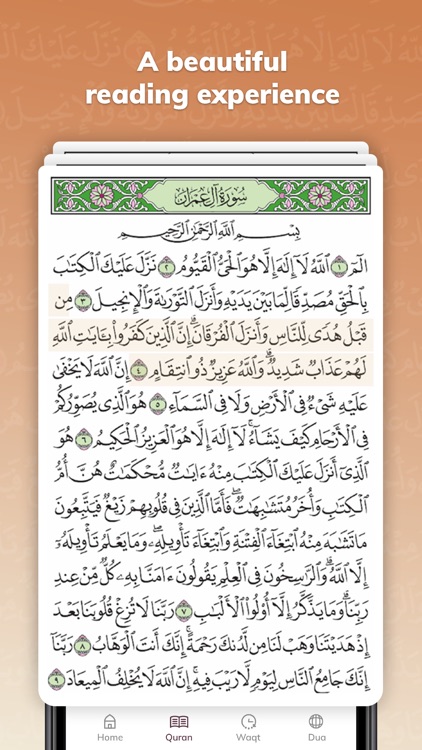 A beautiful
reading experience
سُورَةُ آلِ عِمْرَان
بِسْمِ ٱللَّهِ ٱلرَّحْمَٰنِ ٱلرَّحِيمِ
الٓمٓ ١ ٱللَّهُ لَآ إِلَٰهَ إِلَّا هُوَ ٱلْحَىُّ ٱلْقَيُّومُ ٢ نَزَّلَ عَلَيْكَ ٱلْكِتَٰبَ
بِٱلْحَقِّ مُصَدِّقًا لِّمَا بَيْنَ يَدَيْهِ وَأَنزَلَ ٱلتَّوْرَىٰةَ وَٱلْإِنجِيلَ ٣ مِن
قَبْلُ هُدًى لِّلنَّاسِ وَأَنزَلَ ٱلْفُرْقَانَ ۗ إِنَّ ٱلَّذِينَ كَفَرُوا۟ بِـَٔايَٰتِ ٱللَّهِ
لَهُمْ عَذَابٌ شَدِيدٌ ۗ وَٱللَّهُ عَزِيزٌ ذُو ٱنتِقَامٍ ٤ إِنَّ ٱللَّهَ لَا يَخْفَىٰ
عَلَيْهِ شَىْءٌ فِى ٱلْأَرْضِ وَلَا فِى ٱلسَّمَآءِ ٥ هُوَ ٱلَّذِى يُصَوِّرُكُمْ
فِى ٱلْأَرْحَامِ كَيْفَ يَشَآءُ ۚ لَآ إِلَٰهَ إِلَّا هُوَ ٱلْعَزِيزُ ٱلْحَكِيمُ ٦ هُوَ
ٱلَّذِىٓ أَنزَلَ عَلَيْكَ ٱلْكِتَٰبَ مِنْهُ ءَايَٰتٌ مُّحْكَمَٰتٌ هُنَّ أُمُّ
ٱلْكِتَٰبِ وَأُخَرُ مُتَشَٰبِهَٰتٌ ۖ فَأَمَّا ٱلَّذِينَ فِى قُلُوبِهِمْ زَيْغٌ فَيَتَّبِعُونَ
مَا تَشَٰبَهَ مِنْهُ ٱبْتِغَآءَ ٱلْفِتْنَةِ وَٱبْتِغَآءَ تَأْوِيلِهِۦ ۗ وَمَا يَعْلَمُ تَأْوِيلَهُۥٓ
إِلَّا ٱللَّهُ ۗ وَٱلرَّٰسِخُونَ فِى ٱلْعِلْمِ يَقُولُونَ ءَامَنَّا بِهِۦ كُلٌّ مِّنْ عِندِ
رَبِّنَا ۗ وَمَا يَذَّكَّرُ إِلَّآ أُو۟لُوا۟ ٱلْأَلْبَٰبِ ٧ رَبَّنَا لَا تُزِغْ قُلُوبَنَا بَعْدَ
إِذْ هَدَيْتَنَا وَهَبْ لَنَا مِن لَّدُنكَ رَحْمَةً ۚ إِنَّكَ أَنتَ ٱلْوَهَّابُ ٨ رَبَّنَآ
إِنَّكَ جَامِعُ ٱلنَّاسِ لِيَوْمٍ لَّا رَيْبَ فِيهِ ۚ إِنَّ ٱللَّهَ لَا يُخْلِفُ ٱلْمِيعَادَ ٩
Home Quran Waqt Dua